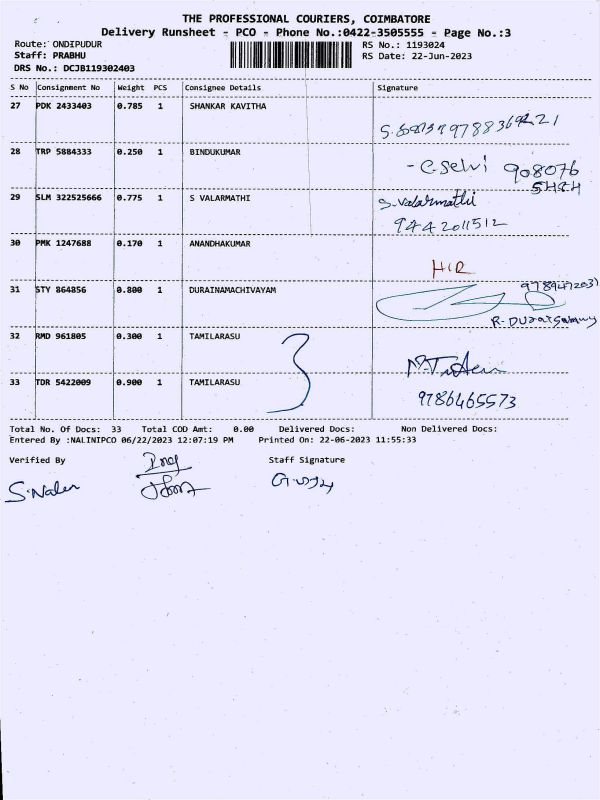 THE PROFESSIONAL COURIERS, COIMBATORE
Delivery Runsheet - PCO - Phone No.:0422-3505555 - Page No.:3
Route: ONDIPUDUR RS No.: 1193024
Staff: PRABHU RS Date: 22-Jun-2023
DRS No.: DCJB119302403
S No Consignment No Weight PCS Consignee Details Signature
27 PDK 2433403 0.785 1 SHANKAR KAVITHA
9788369221
28 TRP 5884333 0.250 1 BINDUKUMAR
- C. Selvi 908076
5424
29 SLM 322525666 0.775 1 S VALARMATHI S. Valarmathi
9442011512
30 PMK 1247688 0.170 1 ANANDHAKUMAR
H/R
31 STY 864856 0.800 1 DURAINAMACHIVAYAM
R. Duraisamy
32 RMD 961805 0.300 1 TAMILARASU
3
33 TDR 5422009 0.900 1 TAMILARASU
9786465573
Total No. Of Docs: 33 Total COD Amt: 0.00 Delivered Docs: Non Delivered Docs:
Entered By :NALINIPCO 06/22/2023 12:07:19 PM Printed On: 22-06-2023 11:55:33
Verified By Staff Signature